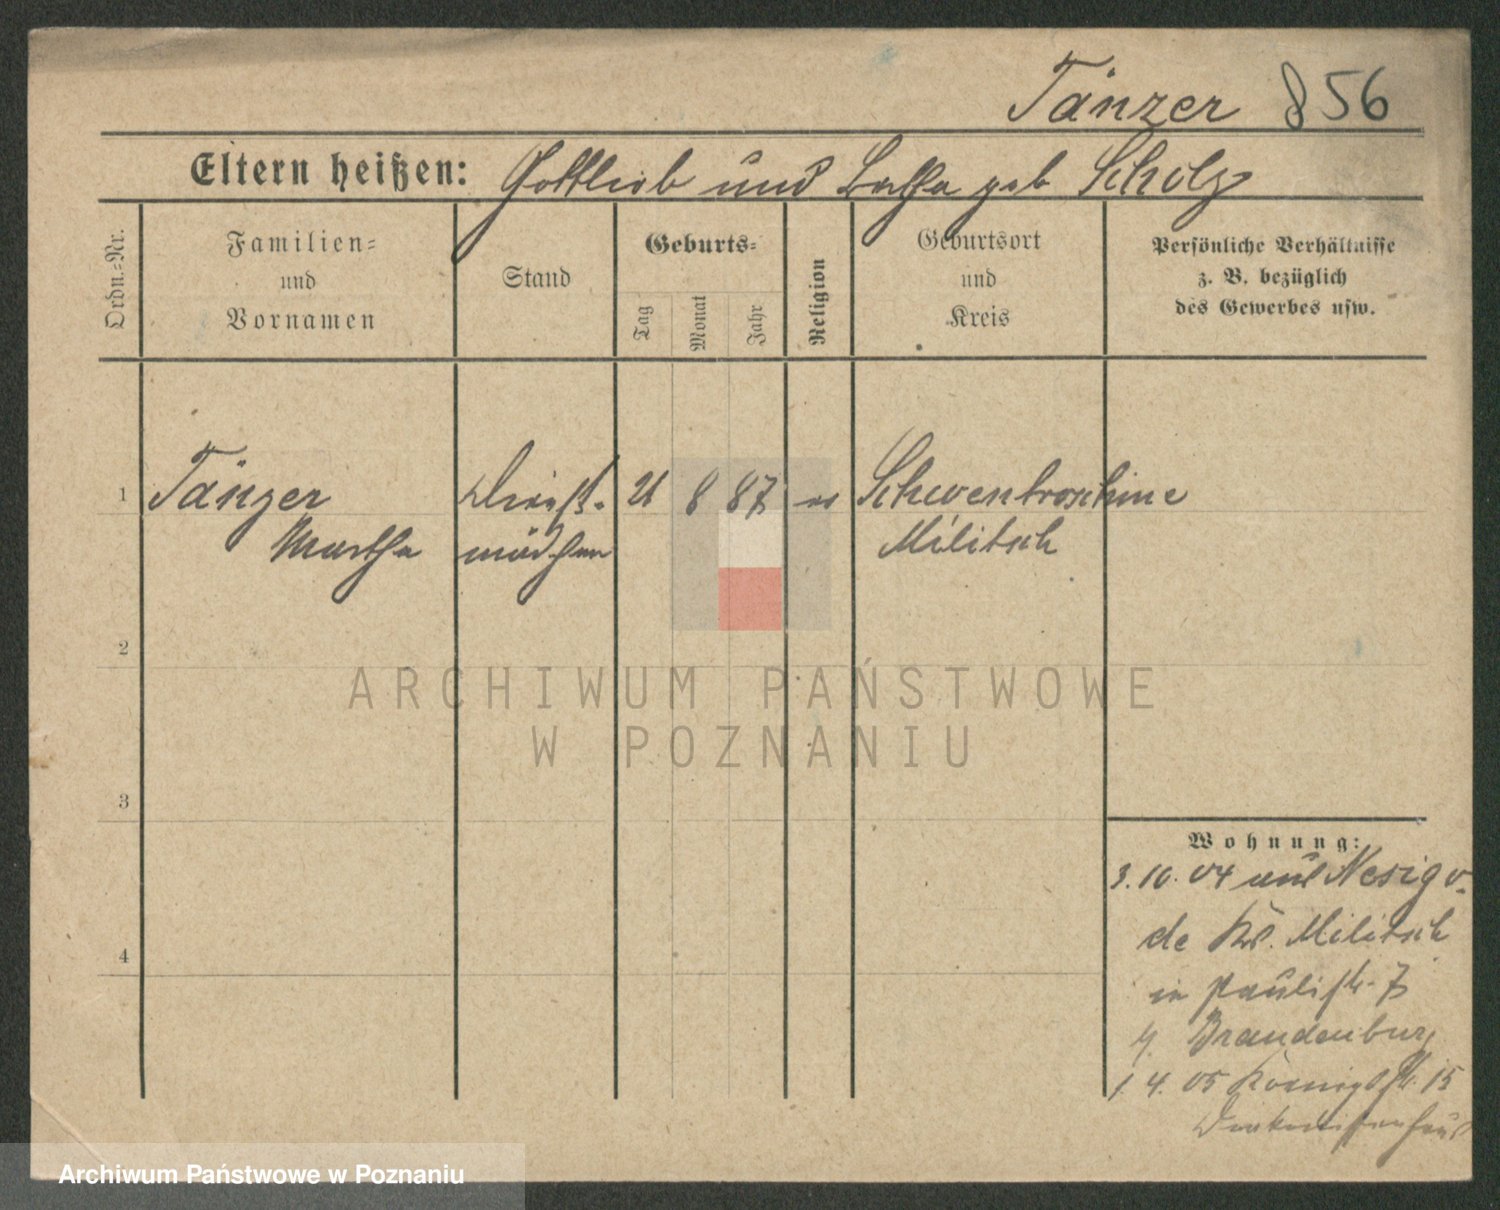 Tänzer 856
Eltern heißen: Gottlieb und Bertha geb Scholz
Ordn.-Nr.
Familien-
und
Vornamen
Stand
Geburts-
Tag
Monat
Jahr
Religion
Geburtsort
und
Kreis
Persönliche Verhältnisse
z. B. bezüglich
des Gewerbes usw.
1 Tänzer Dienst- 21 8 87 ev Schwentroschine
Martha mädchen Militsch
2
ARCHIWUM PAŃSTWOWE
W POZNANIU
3
Wohnung:
3.10.04 aus Nesigo-
de Krs. Militsch
4
in Paulistr. 7
b. Brandenburg
1.4.05 Königstr. 15
Diakonissenhaus
Archiwum Państwowe w Poznaniu